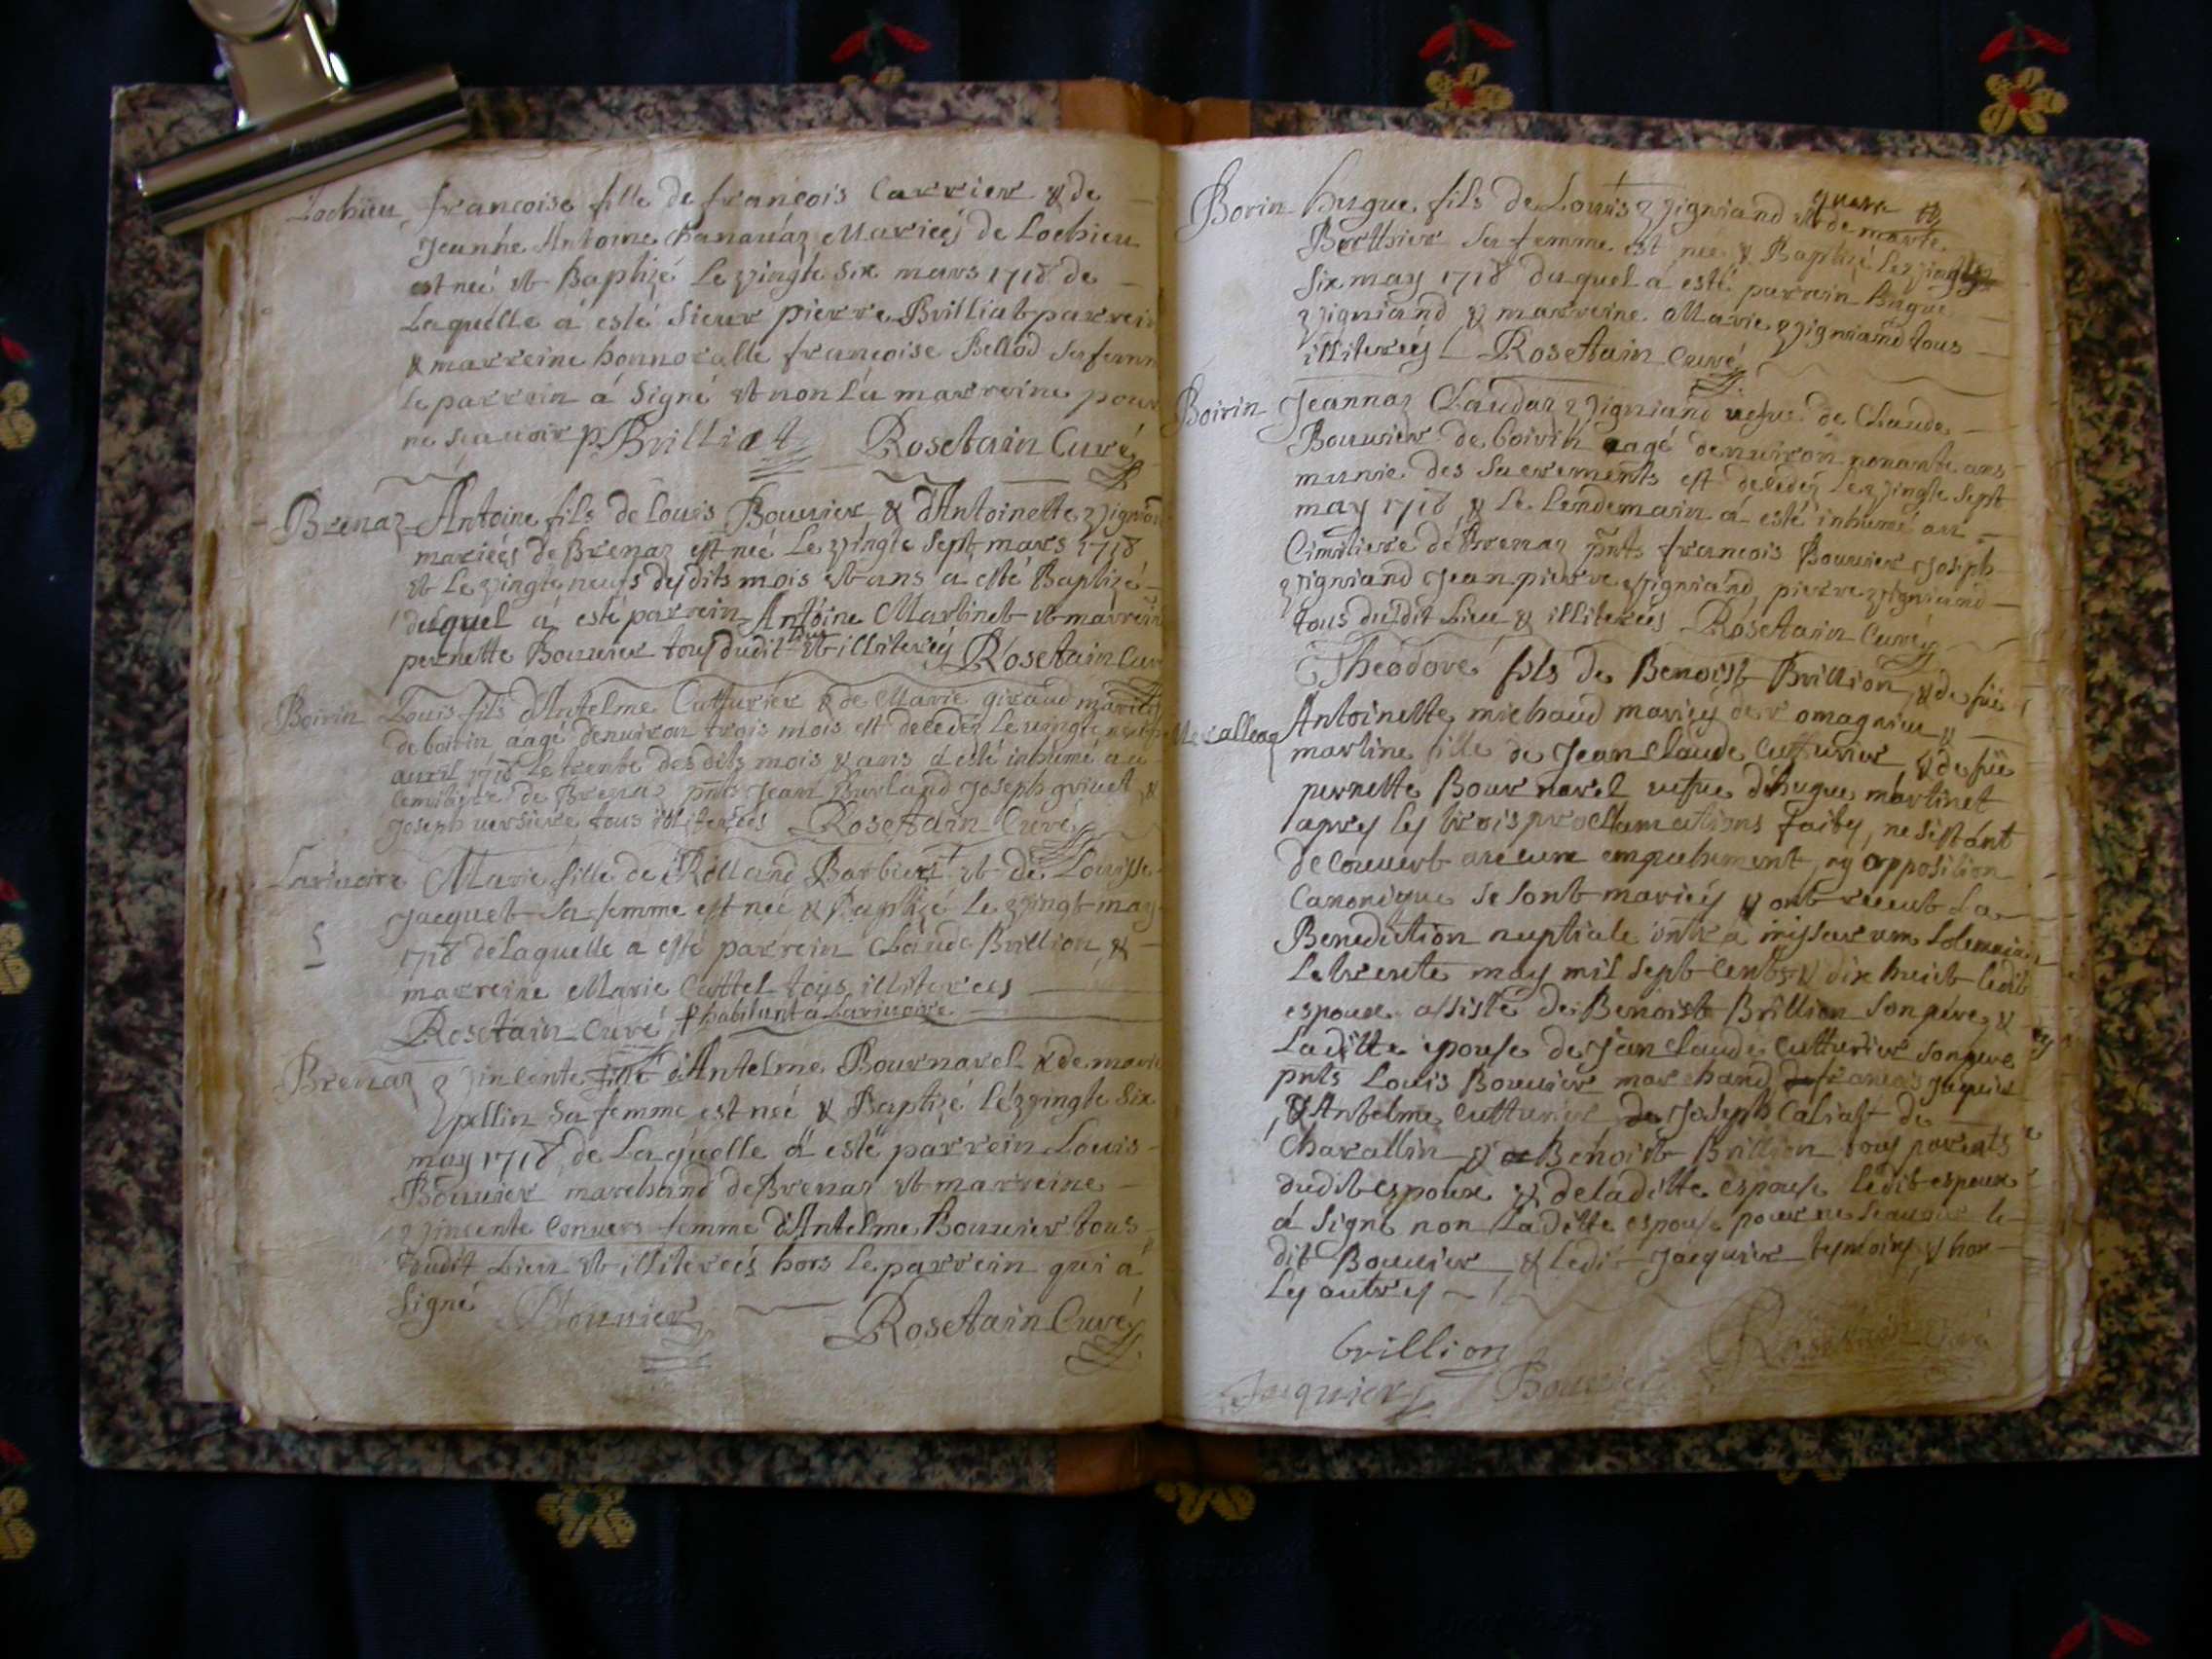 Lochieu françoise fille de françois Carrier & de
Jeanne Antoine Chanauaz Marieés de Lochieu
est neé et Baptizé le vingte six mars 1718 de
Laquelle á esté Sieur pierre Brilliat parrein
& marreine honnoralle françoise Bellod sa femm
le parrein á Signé et non La marreine pour
ne scauoir pBrilliat Rosetain Curé
Brenaz Antoine fils de Louis Bouuier & d'Antoinette vignian
marieés de Brenaz est neé Le vingte Sept mars 1718
et Le vingte neufs desdits mois et ans a esté Baptizé
duquel á esté parrein Antoine Martinet et marrein
pernette Bouuier tous dudit Lieu et illiterés Rosetain Cur
Boirin Louis fils d'Antelme Cutturier & de Marie giraud mariés
de boirin aagé denuiron trois mois est decedez Le uingte neuf
auril 1718 Le trente des dits mois & ans á esté inhumé au
Cemitiere de Brenaz pnts Jean Burland Joseph griuet &
Joseph uersiere tous illitereés Rosetain Curé
Lariuoire Marie fille de Rolland Barbier et de Louisse
Jacquet sa femme est neé & Baptizé Le vingt may
1718 de Laquelle a esté parrein Claude Brillion &
marreine Marie Cuttel tous illitereés
Rosetain Curé habitant a Lariuoire
Brenaz vincente fille d'Antelme Bournarel & de marie
pellin Sa femme est neé & Baptizé Le vingte Six
may 1718 de Laquelle á esté parrein Louis
Bouuier marchand de Brenaz et marreine
vincente Conuers femme d'Antelme Bouuier tous
dudit Lieu et illitereés hors Le parrein qui a
Signé Bouuier Rosetain Curé
Borin hugue fils de Louis vigniand & de marte
Berthier sa femme est neé & Baptizé Le vingte
Six may 1718 duquel á esté parrain hugue
vigniand & marreine Marie vigniand tous
illitereés Rosetain Curé
Boirin Jeannaz Claudaz vigniand uefue de Claude
Bouuier de boirin aagé denuiron nonante ans
munie des Sacrements est decedez Le vingte Sept
may 1718 & Le Lendemain á esté inhumé au
Cimitiere de Brenaz pnts françois Bouuier Joseph
vigniand Jean pierre vigniand pierre vigniand
tous dudit Lieu & illitereés Rosetain Curé
Theodore fils de Benoist Brillion & de füe
Antoinette michaud mariés de romagnieu &
martine fille de Jean Claude Cutturier & de füe
pernette Bournarel uefue d'hugue martinet
apres les trois proclamations faites, ne Sestant
decouuert aucune empechement, ny opposition
Canonique se sont mariés & ont receut La
Benediction nuptiale
Le trente may mil Sept Cents & dix huict ledit
espoux assisté de Benoist Brillion Son pére &
Laditte epouse de Jean Claude Cutturier son pere
pnts Louis Bouuier marchand françois Jaquier
& Antelme Cutturier Joseph de
Charallin & Benoist Brillion tous parents
dudit espoux & de laditte espouse ledit espoux
á Signé non Laditte espouse pour ne Scauoir le
dit Bouuier & Ledit Jacquier tesmoins & non
Les autres
brillion Rosetain Curé
Jacquier Bouuier